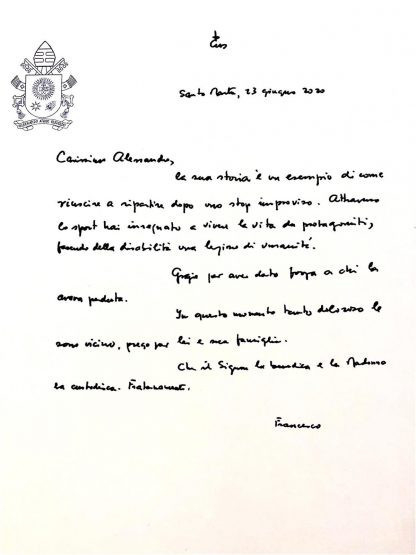 Santa Marta, 23 giugno 2020
Carissimo Alessandro,
la sua storia è un esempio di come
riuscire a ripartire dopo uno stop improvviso. Attraverso
lo sport hai insegnato a vivere la vita da protagonisti,
facendo della disabilità una lezione di umanità.
Grazie per aver dato forza a chi la
aveva perduta.
In questo momento tanto doloroso le
sono vicino, prego per lei e sua famiglia.
Che il Signore la benedica e la Madonna
la custodisca. Fraternamente.
Francesco